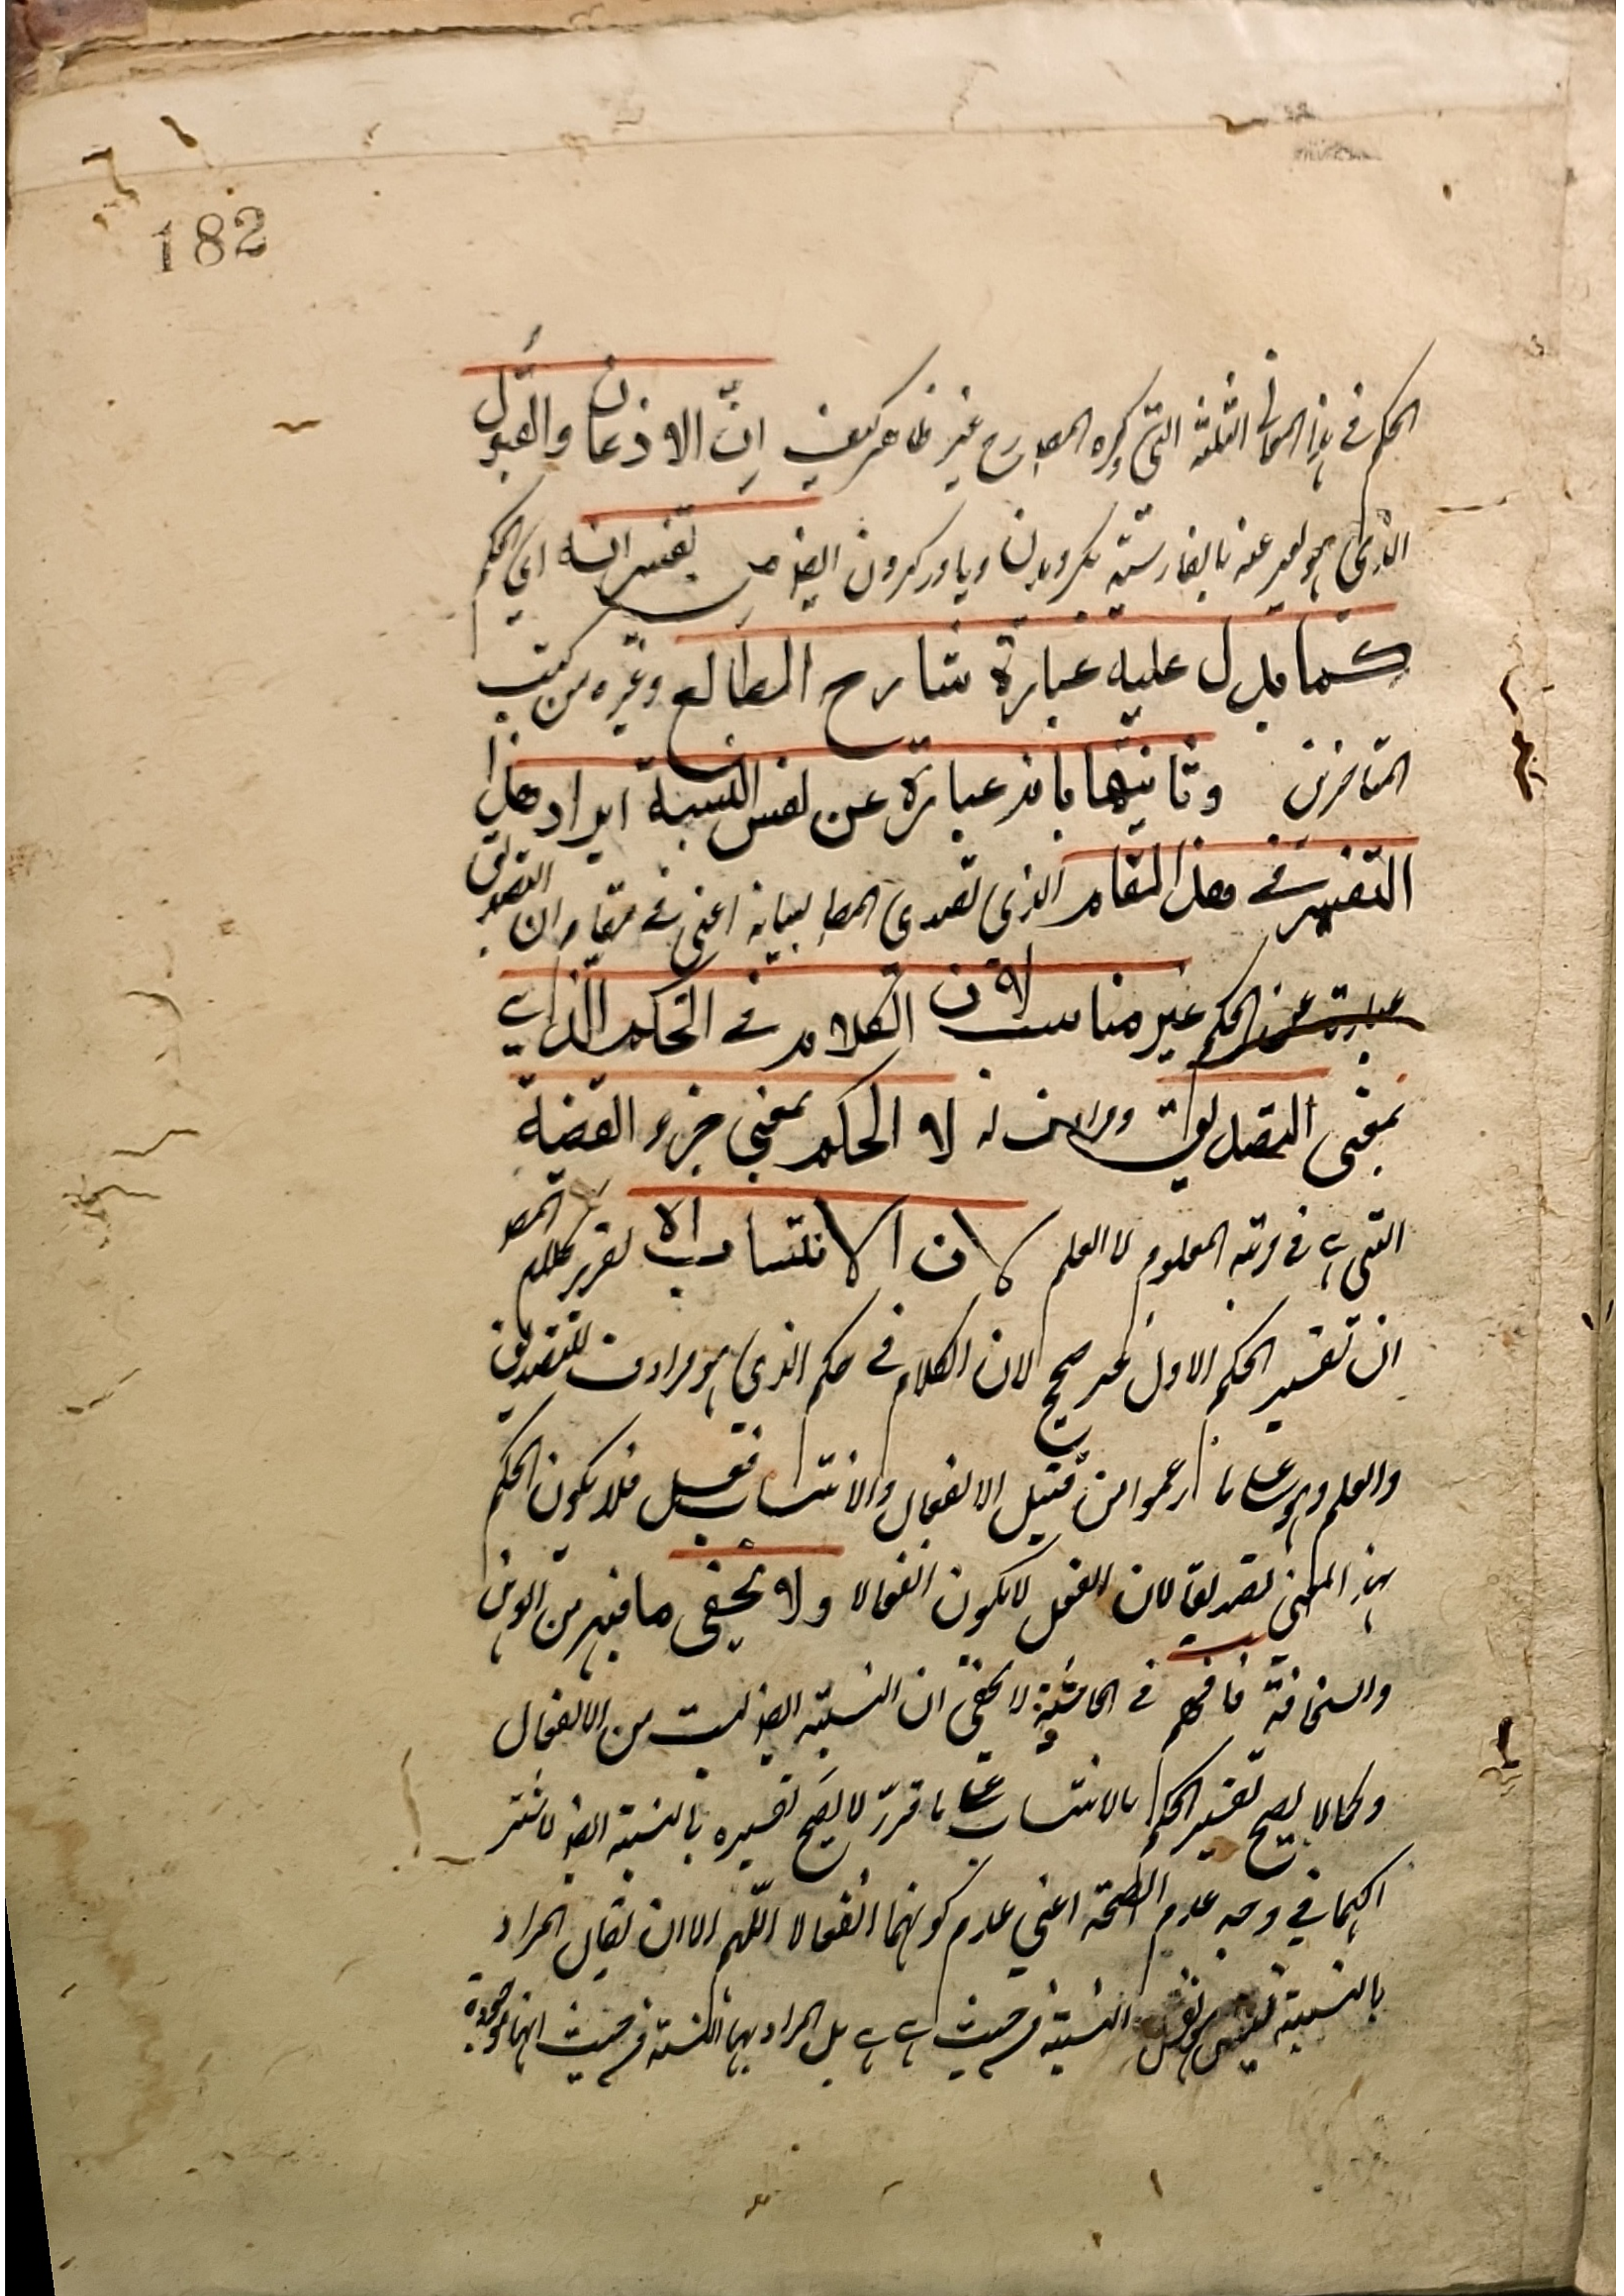 182
الحكم في هذا المعاني الثلثة التي ذكره المصـ رح غير ظاهر كيف انّ الاذعان والقبول
الذي هو يعبر عنه بالفارسية بكرويدن وباور كردن ايضا تفسيرا له اي الحكم
كما يدل عليه عبارة شارح المطالع وغيره من كتب
المتاخرين وثانيها بانه عبارة عن نفس النسبة ايراد هذا
التفسير في هذا المقام الذي تصدى المصـ لبيانه اعني في مقام ان التصديق
عبارة عن الحكم غير مناسب لان الكلام في الحكم الذي
بمعنى التصديق ومرادف له لا الحكم بمعنى جزء القضية
التي هي في مرتبة المعلوم لا العلم لان الانتساب الا تقرير كلام المصـ
ان تفسير الحكم الاول غير صحيح لان الكلام في حكم الذي هو مرادف للتصديق
والعلم وهو على ما زعموا من قبيل الانفعال والانتساب فعل فلا يكون الحكم
بهذا المعنى تصديقا لان الفعل لا يكون انفعالا ولا يخفى ما فيه من الوهن
والسخافة فافهم في الحاشية لا يخفى ان النسبة ايضا ليست من الانفعال
وكما لا يصح تفسير الحكم بالانتساب على ما قرر لا يصح تفسيره بالنسبة ايضا لاشتر
اكهما في وجه عدم الصحة اعني عدم كونهما انفعالا اللهم الا ان يقال المراد
بالنسبة ليس نفس النسبة من حيث هي هي بل المراد بها النسبة من حيث انها موجودة